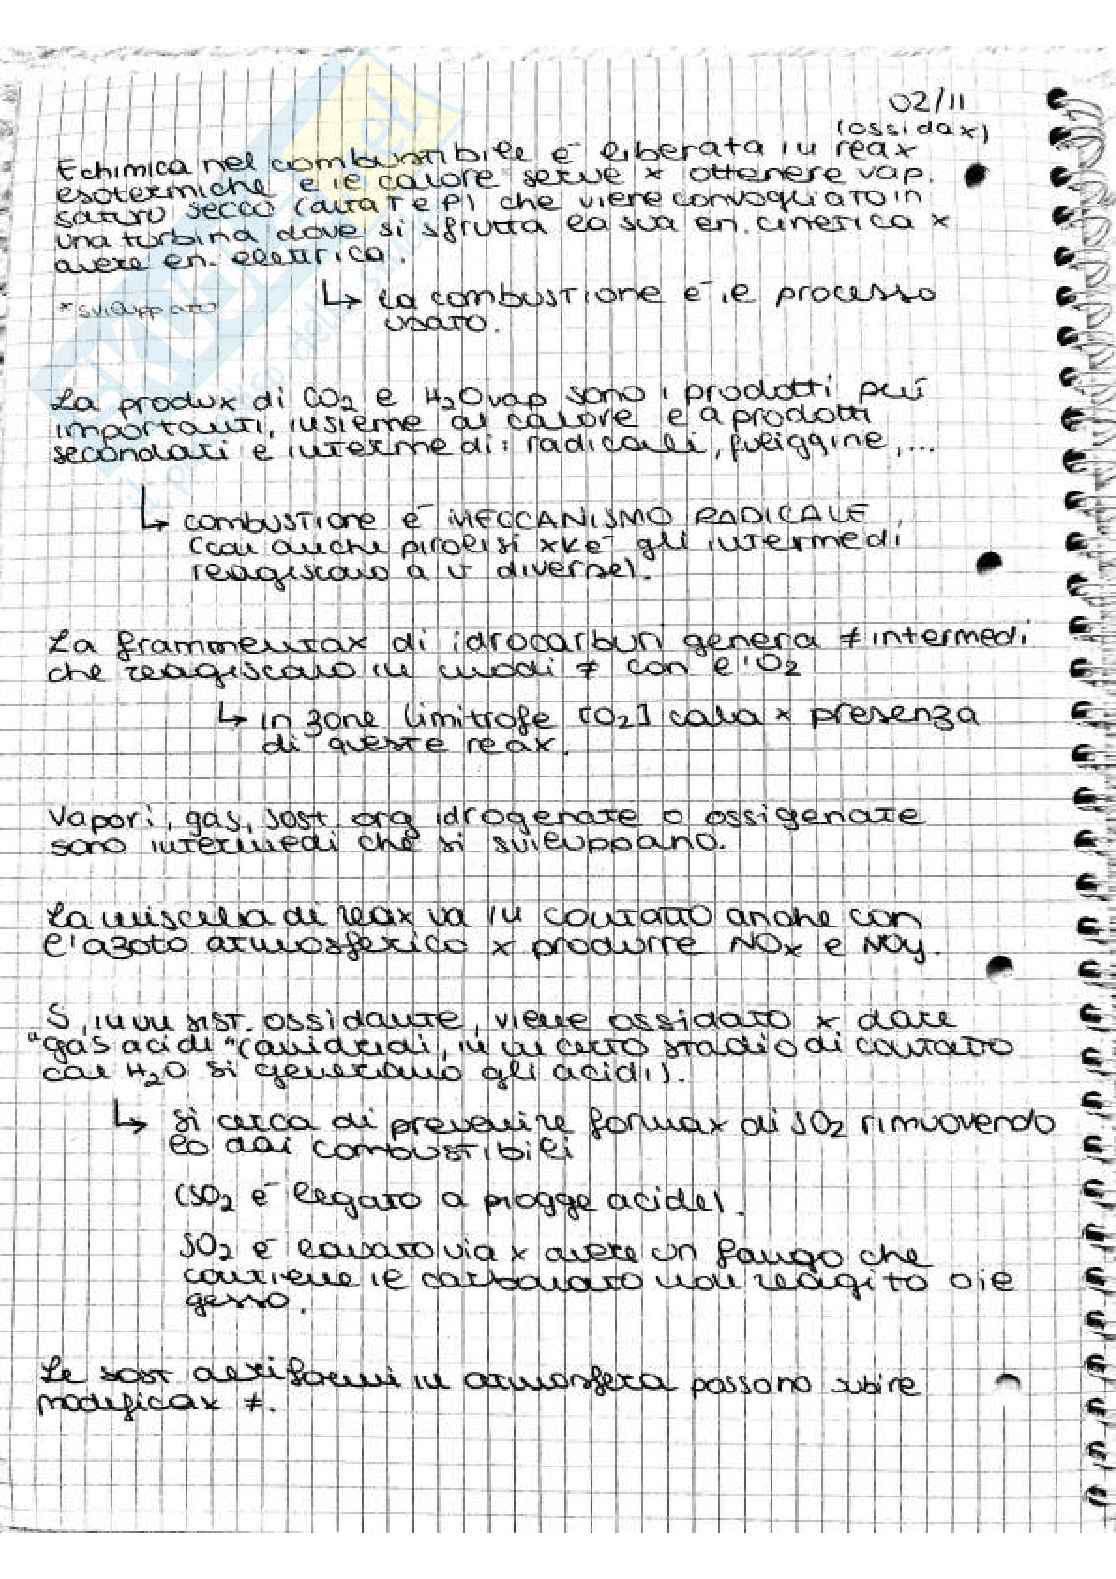 02/11
(ossidax)
E chimica nel combustibile è liberata in reax
esotermiche e il calore serve x ottenere vap.
saturo secco (alta T e P) che viene convogliato in
una turbina dove si sfrutta la sua en. cinetica x
avere en. elettrica.
*sviluppato
↳ la combustione è il processo
usato.
La produx di CO2 e H2Ovap sono i prodotti più
importanti, insieme al calore e a prodotti
secondari e intermedi: radicali, fuliggine,...
↳ combustione è MECCANISMO RADICALE
(con anche pirolisi xkè gli intermedi
reagiscono a v diverse).
La frammentax di idrocarburi genera ≠ intermedi
che reagiscono in modi ≠ con l'O2
↳ in zone limitrofe [O2] cala x presenza
di queste reax.
Vapori, gas, sost. org idrogenate o ossigenate
sono intermedi che si sviluppano.
La miscela di reax va in contatto anche con
l'azoto atmosferico x produrre NOx e NOy.
S, in un sist. ossidante, viene ossidato x dare
"gas acidi" (anidridi, in un certo stadio di contatto
con H2O si generano gli acidi).
↳ si cerca di prevenire formax di SO2 rimuovendo
lo dai combustibili
(SO2 è legato a piogge acide).
SO2 è lavato via x avere un fango che
contiene il carbonato non reagito o il
gesso.
Le sost aeriformi in atmosfera possono subire
modificax ≠.